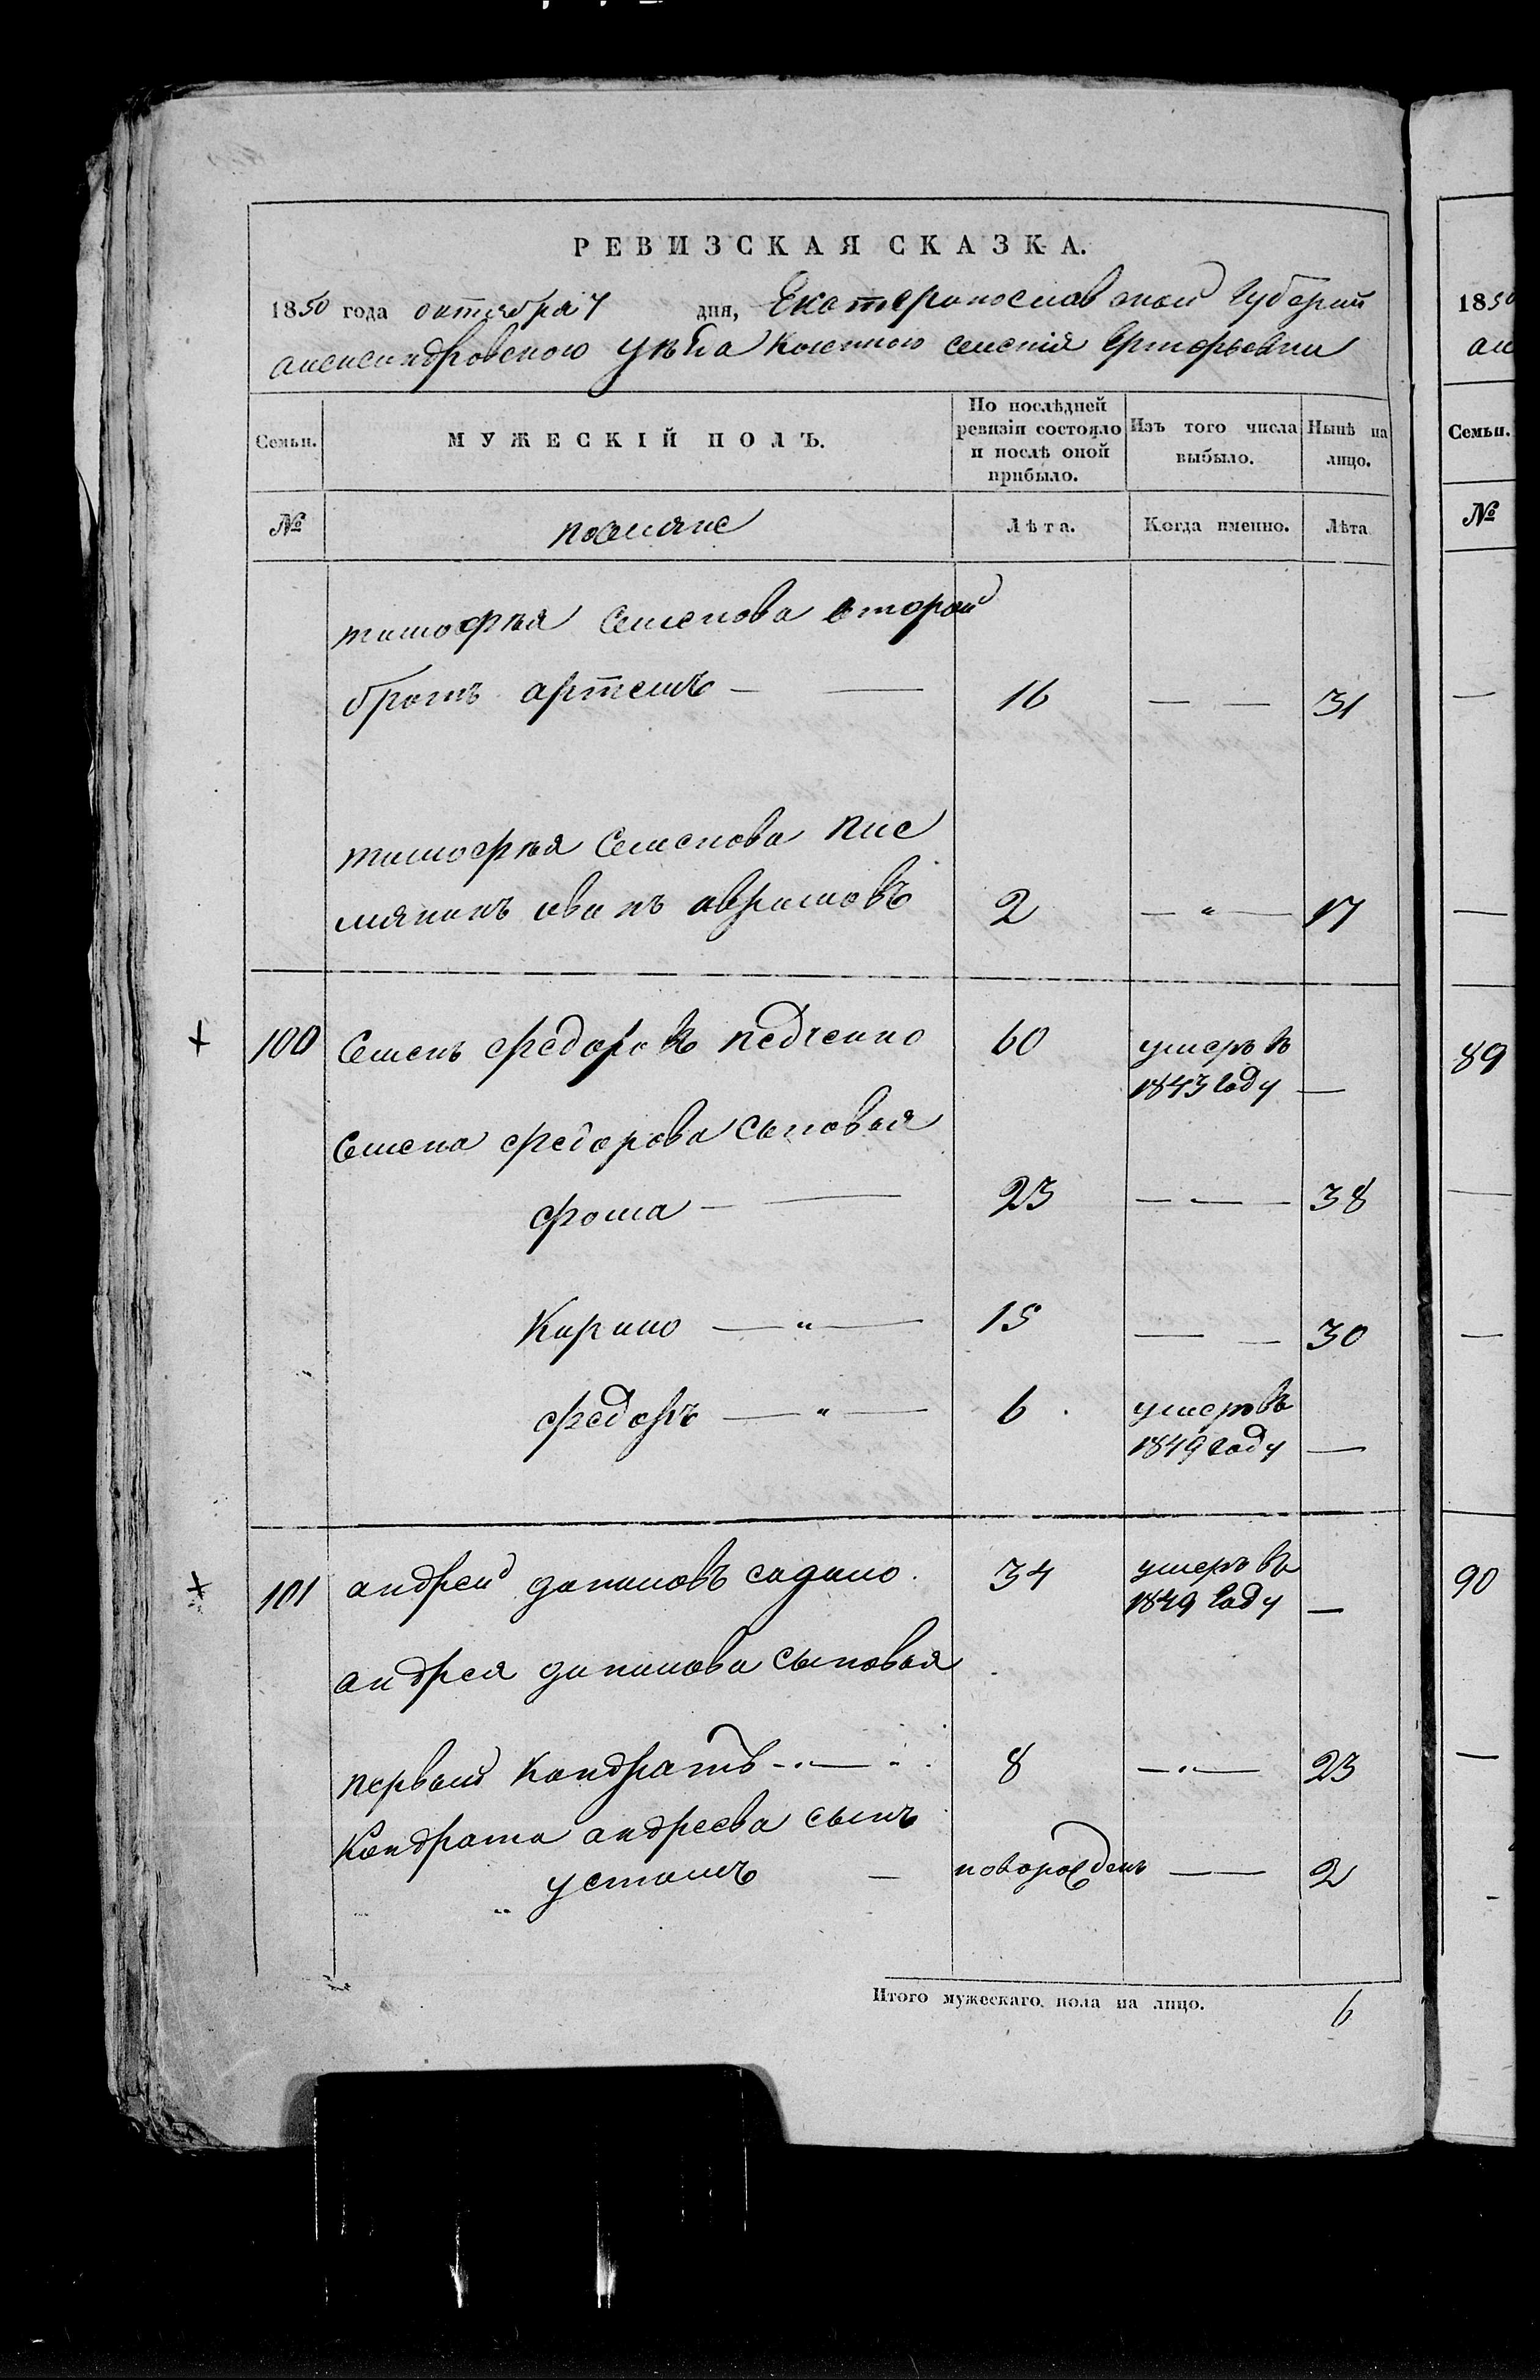 РЕВИЗСКАЯ СКАЗКА.
1850 года октября 7 дня, Екатеринославской Губернии
александровского уезда казенного селения Григорьевки
Семьи. МУЖЕСКІЙ ПОЛЪ. По послѣдней ревизіи состояло и послѣ оной прибыло. Изъ того числа выбыло. Нынѣ на лицо.
№ поселяне Лѣта. Когда именно. Лѣта
тимофѣя Семенова второй
братъ артемъ — — 16 — — 31
тимофѣя Семенова пле
мянникъ иванъ аврамовъ 2 — " — 17
100 Семенъ федоровъ педченко 60 умеръ въ
1843 году —
Семена федорова сыновья
фома — — 23 — — 38
Кирило — " — 15 — — 30
федоръ — " — 6 умеръ въ
1849 году —
101 андрей даниловъ садило 34 умеръ въ
1849 году —
андрея данилова сыновья
первый кондратъ — 8 — " — 23
Кондрата андреева сынъ
устимъ — новорожденъ — 2
Итого мужескаго пола на лицо. 6
1850
Семьи.
№
89
90